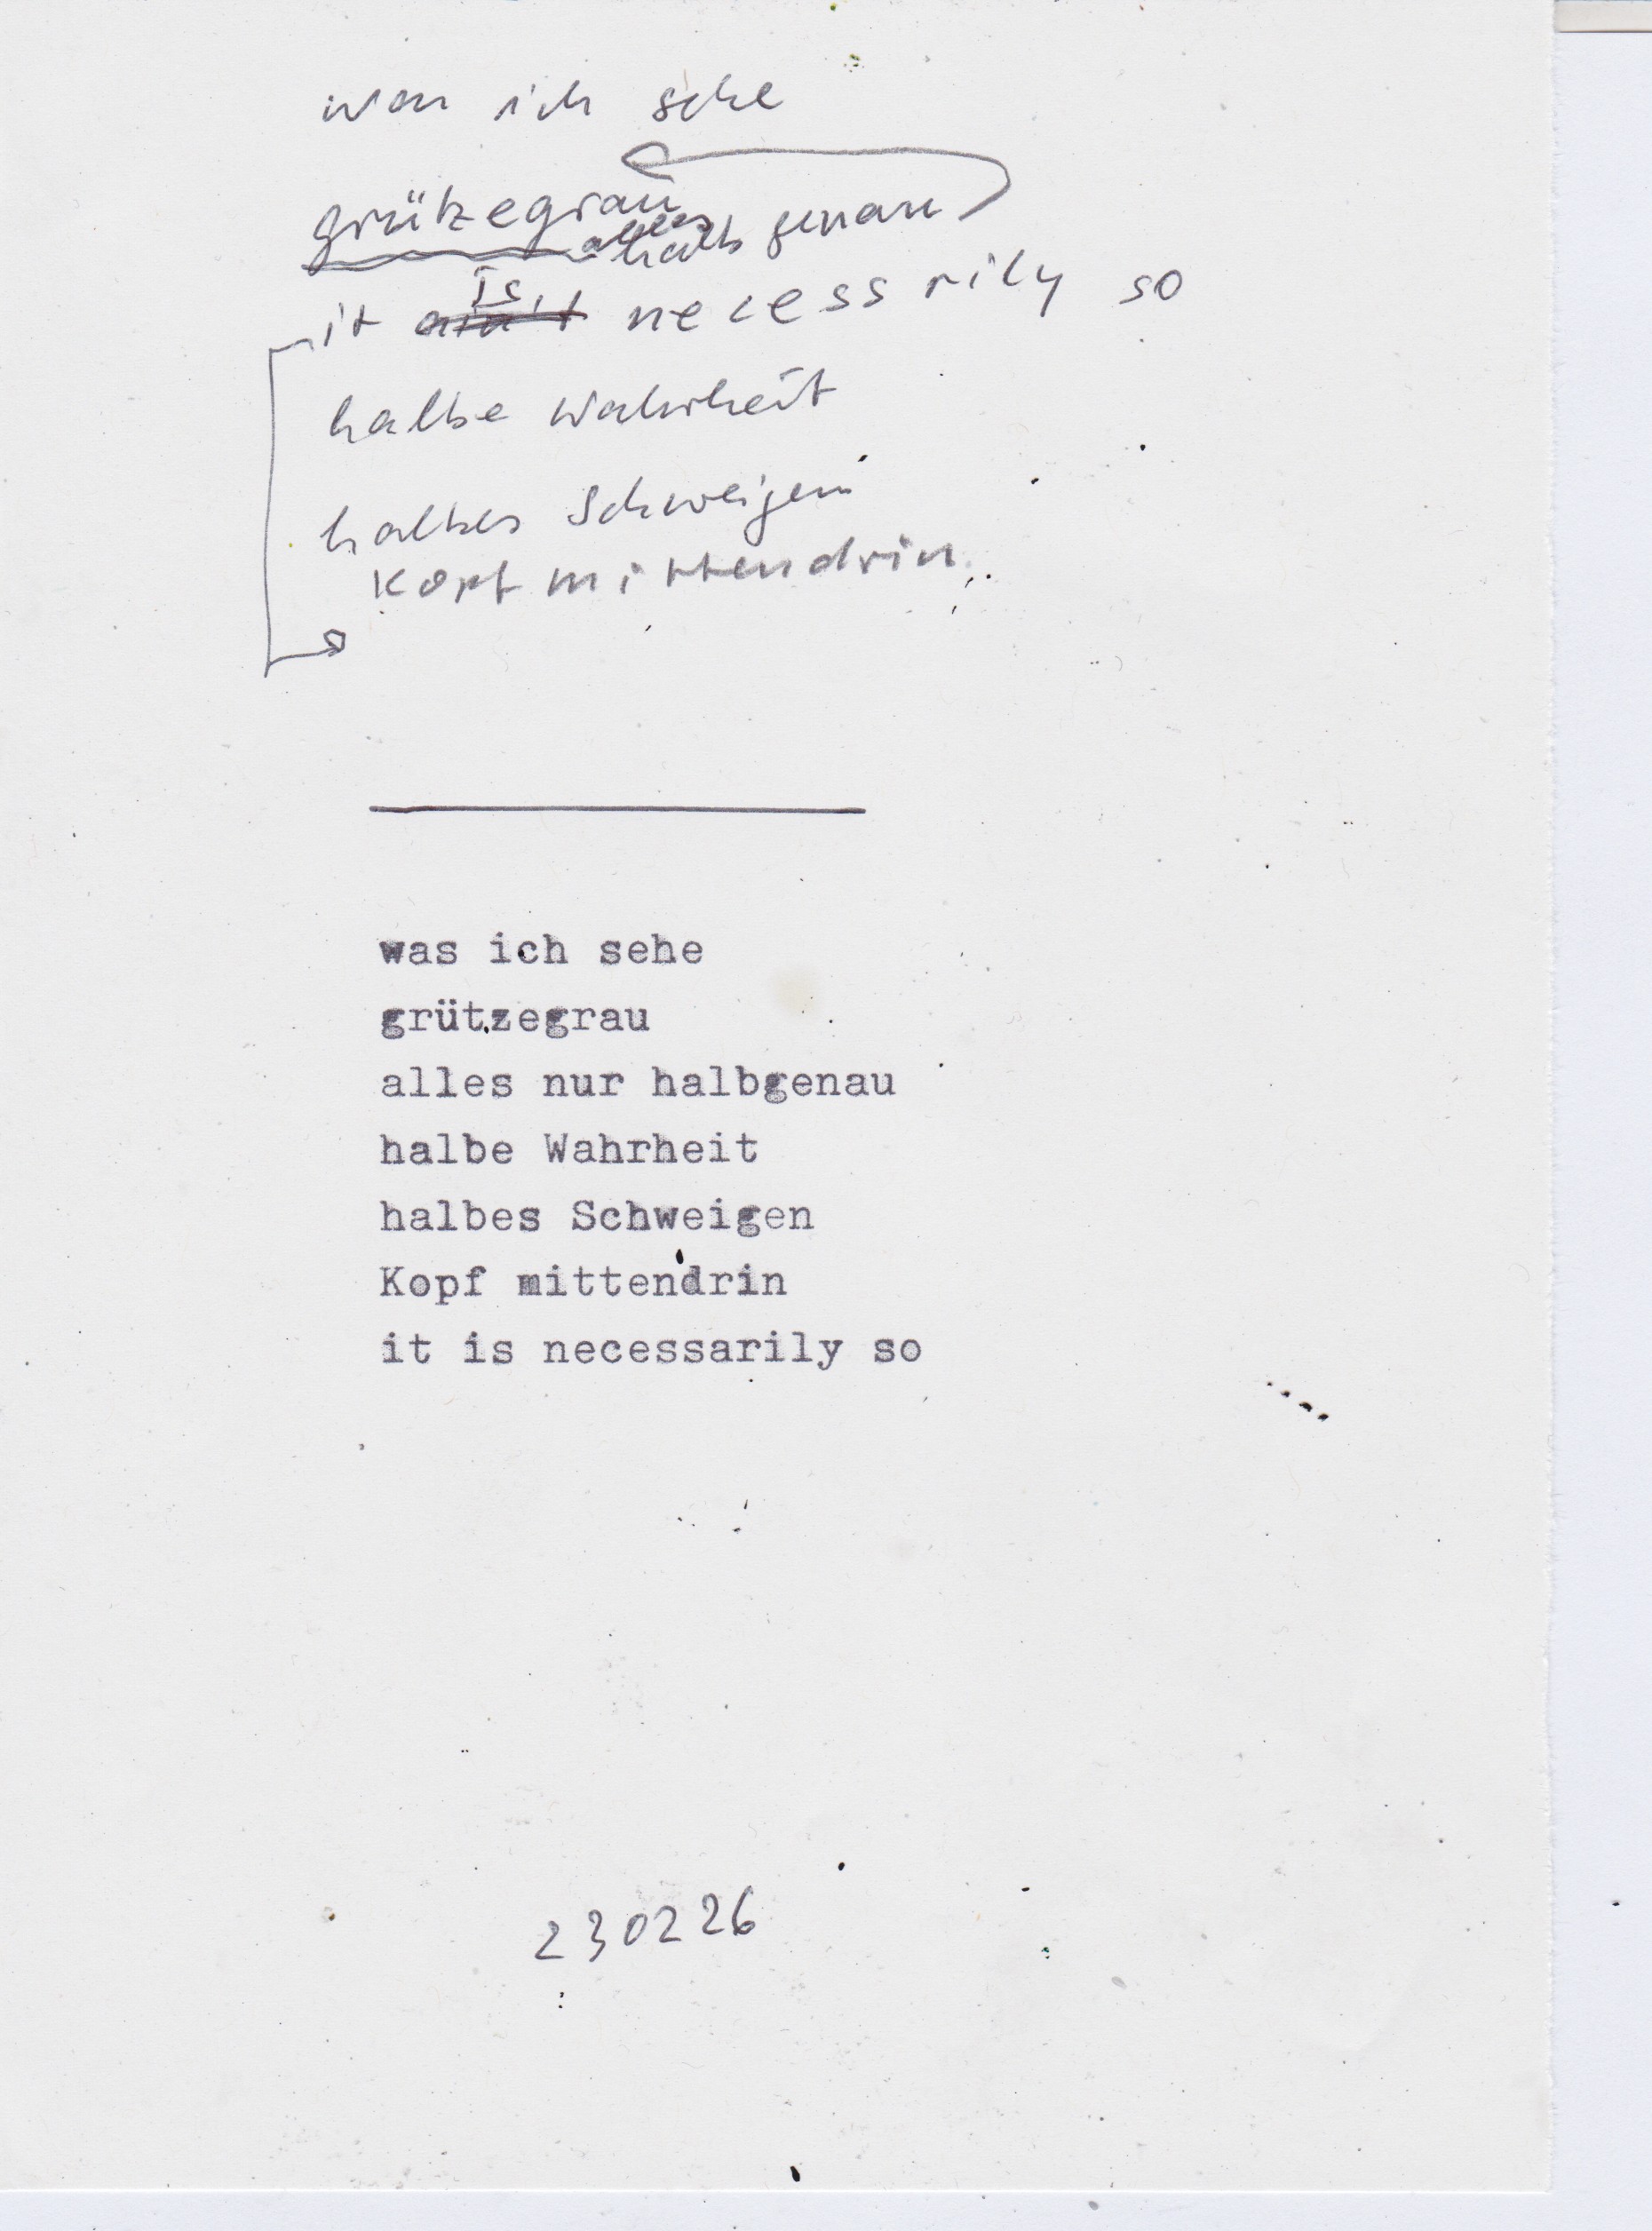 was ich sehe
grützegrau
alles
halb genau
is
it ain't necessrily so
halbe Wahrheit
halbes Schweigen
Kopf mittendrin
was ich sehe
grützegrau
alles nur halbgenau
halbe Wahrheit
halbes Schweigen
Kopf mittendrin
it is necessarily so
230226